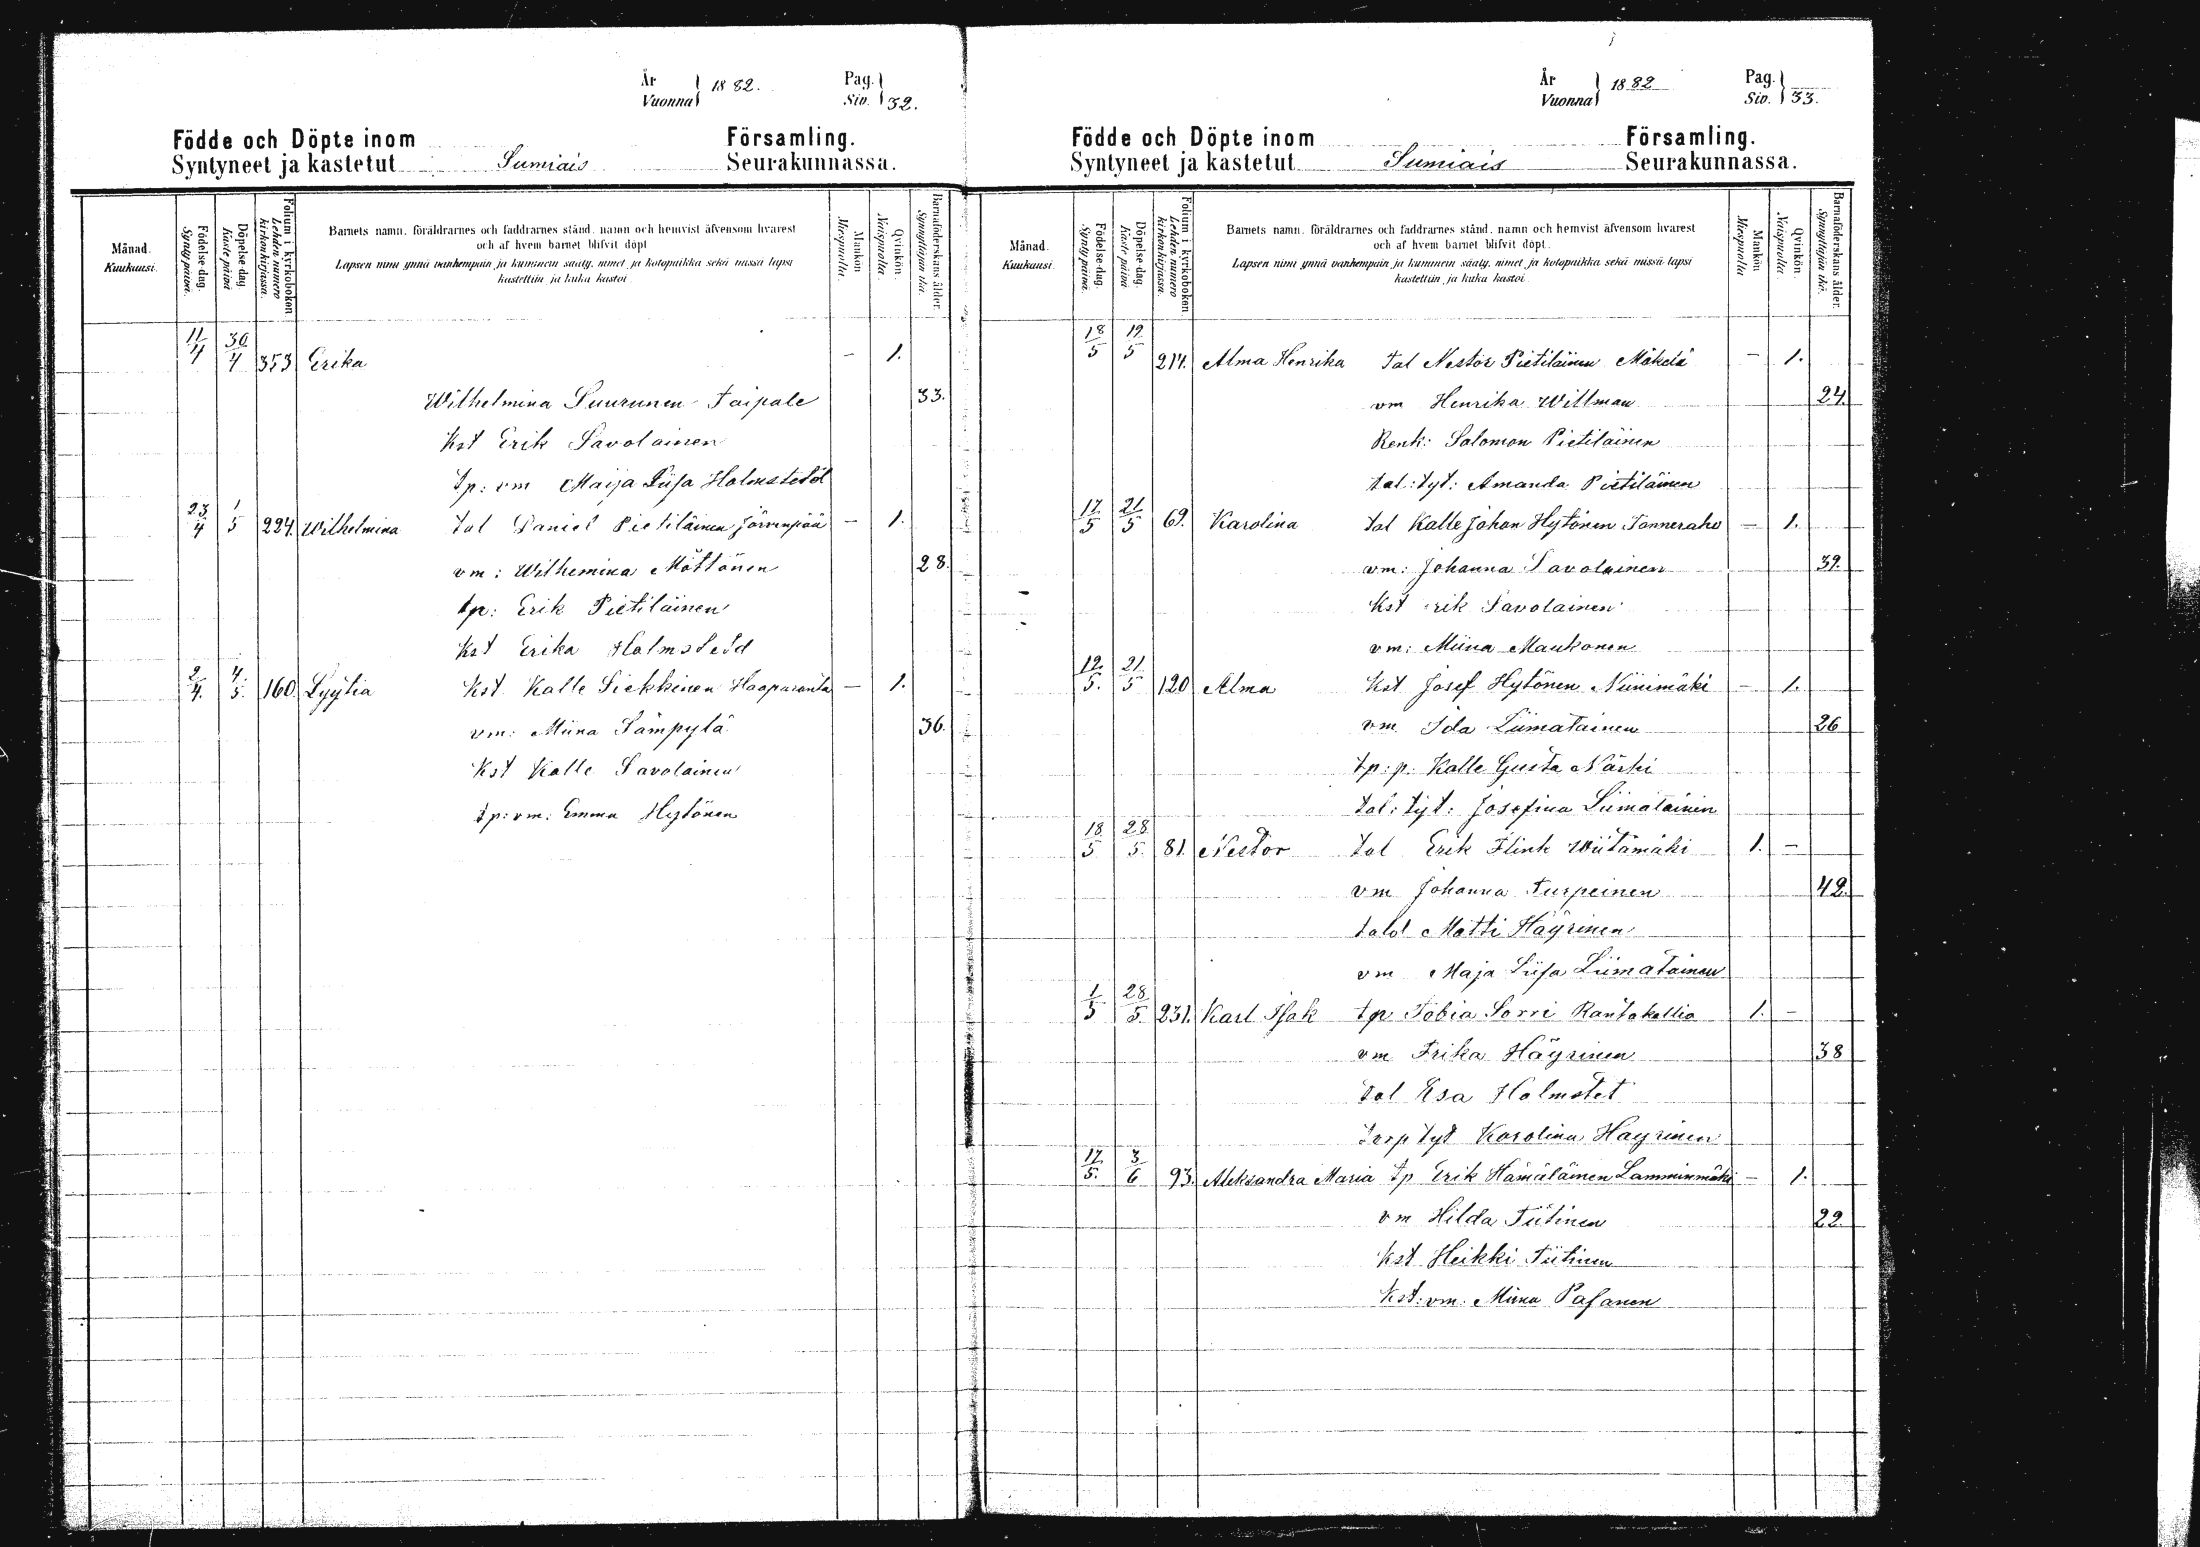 År
Vuonna 1882.
Pag.
Siv. 32.
Födde och Döpte inom Församling.
Syntyneet ja kastetut Sumiais Seurakunnassa.
Månad.
Kuukausi.
Födelse dag.
Synty päivä.
Döpelse dag
Kaste päivä
Folium i kyrkoboken.
Lehden numero
kirkonkirjassa.
Barnets namn, föräldrarnes och faddrarnes stånd, namn och hemvist äfvensom hvarest
och af hvem barnet blifvit döpt
Lapsen nimi ynnä vanhempain ja kummein sääty, nimet ja kotopaikka sekä missä lapsi
kastettiin ja kuka kastoi.
Mankön
Miespuolta.
Qvinkön.
Naispuolta.
Barnaföderskans ålder.
Synnyttäjän ikä.
11/4 30/4 353 Erika — 1.
Wilhelmina Suurunen Taipale 33.
Kst Erik Savolainen
tp: vm Maija Liisa Holmstedt
23/4 1/5 224. Wilhelmina tal Daniel Pietiläinen Järvenpää — 1.
vm: Wilhemina Möttönen 28.
tp: Erik Pietiläinen
Kst Erika Holmstedd
2/4. 4./5. 160. Lyytia Kst Kalle Siekkinen Haaparanta — 1.
vm: Miina Sämpylä 36.
Kst Kalle Savolainen
tp: vm: Emma Hytönen
År
Vuonna 1882
Pag.
Siv. 33.
Födde och Döpte inom Församling.
Syntyneet ja kastetut Sumiais Seurakunnassa.
Månad.
Kuukausi.
Födelse dag.
Synty päivä.
Döpelse dag.
Kaste päivä.
Folium i kyrkoboken
Lehden numero
kirkonkirjassa.
Barnets namn, föräldrarnes och faddrarnes stånd, namn och hemvist äfvensom hvarest
och af hvem barnet blifvit döpt.
Lapsen nimi ynnä vanhempain ja kummein sääty, nimet ja kotopaikka sekä missä lapsi
kastettiin, ja kuka kastoi.
Mankön
Miespuolta
Qvinkön.
Naispuolta
Barnaföderskans ålder.
Synnyttäjän ikä.
18/5 19/5 217. Alma Henrika tal Nestor Pietiläinen Mäkelä — 1.
vm Henrika Willman 24.
Renk: Salomon Pietiläinen
tal: tyt: Amanda Pietiläinen
17/5 21/5 69. Karolina tal Kalle Johan Hytönen Tanneraho — 1.
vm: Johanna Savolainen 39.
Kst Erik Savolainen
vm: Miina Maukonen
12./5. 21./5 120 Alma Kst Josef Hytönen Niinimäki — 1.
vm Ida Liimatainen 26
tp: p: Kalle Gusta Närhi
tal: tyt: Josefina Liimatainen
18/5 28/5. 81. Nestor tal Erik Flink Wiitamäki 1. —
vm Johanna Turpeinen 42.
tald Matti Häyrinen
vm Maja Liisa Liimatainen
1/5 28/5. 231. Karl Isak tp Tobia Sorri Rantakallio 1. —
vm Frika Häyrinen 38
tal Esa Holmstet
torp tyt Karolina Hayrinen
17./5. 3/6 93. Aleksandra Maria tp Erik Hämäläinen Lamminmäki — 1.
vm Hilda Tiitinen 22.
Kst Heikki Tiitinen
Kst: vm: Miina Pasanen